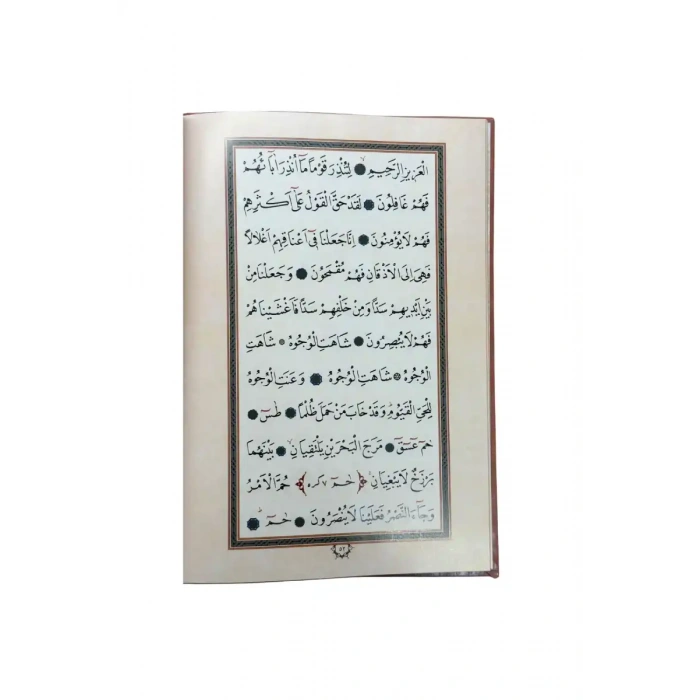 الْعَزِيزِ الرَّحِيمِ ● لِتُنْذِرَ قَوْمًا مَٓا اُنْذِرَ اٰبَٓاؤُ۬هُمْ
فَهُمْ غَافِلُونَ ● لَقَدْ حَقَّ الْقَوْلُ عَلٰٓى اَكْثَرِهِمْ
فَهُمْ لَا يُؤْمِنُونَ ● اِنَّا جَعَلْنَا فٖٓى اَعْنَاقِهِمْ اَغْلَالًا
فَهِىَ اِلَى الْاَذْقَانِ فَهُمْ مُقْمَحُونَ ● وَجَعَلْنَا مِنْ
بَيْنِ اَيْدِيهِمْ سَدًّا وَمِنْ خَلْفِهِمْ سَدًّا فَاَغْشَيْنَاهُمْ
فَهُمْ لَا يُبْصِرُونَ ● شَاهَتِ الْوُجُوهُ ● شَاهَتِ
الْوُجُوهُ ● شَاهَتِ الْوُجُوهُ ● وَعَنَتِ الْوُجُوهُ
لِلْحَىِّ الْقَيُّومِ وَقَدْ خَابَ مَنْ حَمَلَ ظُلْمًا ● طٰسٓ ●
حٰمٓ عٓسٓقٓ ● مَرَجَ الْبَحْرَيْنِ يَلْتَقِيَانِ ● بَيْنَهُمَا
بَرْزَخٌ لَا يَبْغِيَانِ ﴿ حٰمٓ ٧ كره ﴾ حُمَّ الْاَمْرُ
وَجَٓاءَ النَّصْرُ فَعَلَيْنَا لَا يُنْصَرُونَ ● حٰمٓ ●
٥٢